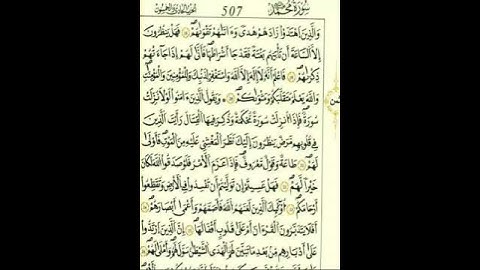 سُورَةُ مُحَمَّد 507 الجزء السادس والعشرون
وَالَّذِينَ اهْتَدَوْا زَادَهُمْ هُدًى وَءَاتَىٰهُمْ تَقْوَىٰهُمْ ۝ فَهَلْ يَنظُرُونَ
إِلَّا السَّاعَةَ أَن تَأْتِيَهُم بَغْتَةً فَقَدْ جَاءَ اشْرَاطُهَا فَأَنَّىٰ لَهُمْ إِذَا جَاءَتْهُمْ
ذِكْرَىٰهُمْ ۝ فَاعْلَمَ أَنَّهُ لَا إِلَٰهَ إِلَّا اللَّهُ وَاسْتَغْفِرْ لِذَنبِكَ وَلِلْمُؤْمِنِينَ وَالْمُؤْمِنَٰتِ
وَاللَّهُ يَعْلَمُ مُتَقَلَّبَكُمْ وَمَثْوَىٰكُمْ ۝ وَيَقُولُ الَّذِينَ ءَامَنُوا لَوْلَا نُزِّلَتْ
سُورَةٌ فَإِذَا أُنزِلَتْ سُورَةٌ مُّحْكَمَةٌ وَذُكِرَ فِيهَا الْقِتَالُ رَأَيْتَ الَّذِينَ
فِي قُلُوبِهِم مَّرَضٌ يَنظُرُونَ إِلَيْكَ نَظَرَ الْمَغْشِيِّ عَلَيْهِ مِنَ الْمَوْتِ فَأَوْلَىٰ
لَهُمْ ۝ طَاعَةٌ وَقَوْلٌ مَّعْرُوفٌ فَإِذَا عَزَمَ الْأَمْرُ فَلَوْ صَدَقُوا اللَّهَ لَكَانَ
خَيْرًا لَّهُمْ ۝ فَهَلْ عَسَيْتُمْ إِن تَوَلَّيْتُمْ أَن تُفْسِدُوا فِي الْأَرْضِ وَتُقَطِّعُوا
أَرْحَامَكُمْ ۝ أُولَٰئِكَ الَّذِينَ لَعَنَهُمُ اللَّهُ فَأَصَمَّهُمْ وَأَعْمَىٰ أَبْصَٰرَهُمْ ۝
أَفَلَا يَتَدَبَّرُونَ الْقُرْءَانَ أَمْ عَلَىٰ قُلُوبٍ أَقْفَالُهَا ۝ إِنَّ الَّذِينَ ارْتَدُّوا
عَلَىٰ أَدْبَٰرِهِم مِّن بَعْدِ مَا تَبَيَّنَ لَهُمُ الْهُدَى الشَّيْطَٰنُ سَوَّلَ لَهُمْ وَأَمْلَىٰ لَهُمْ
ثمن